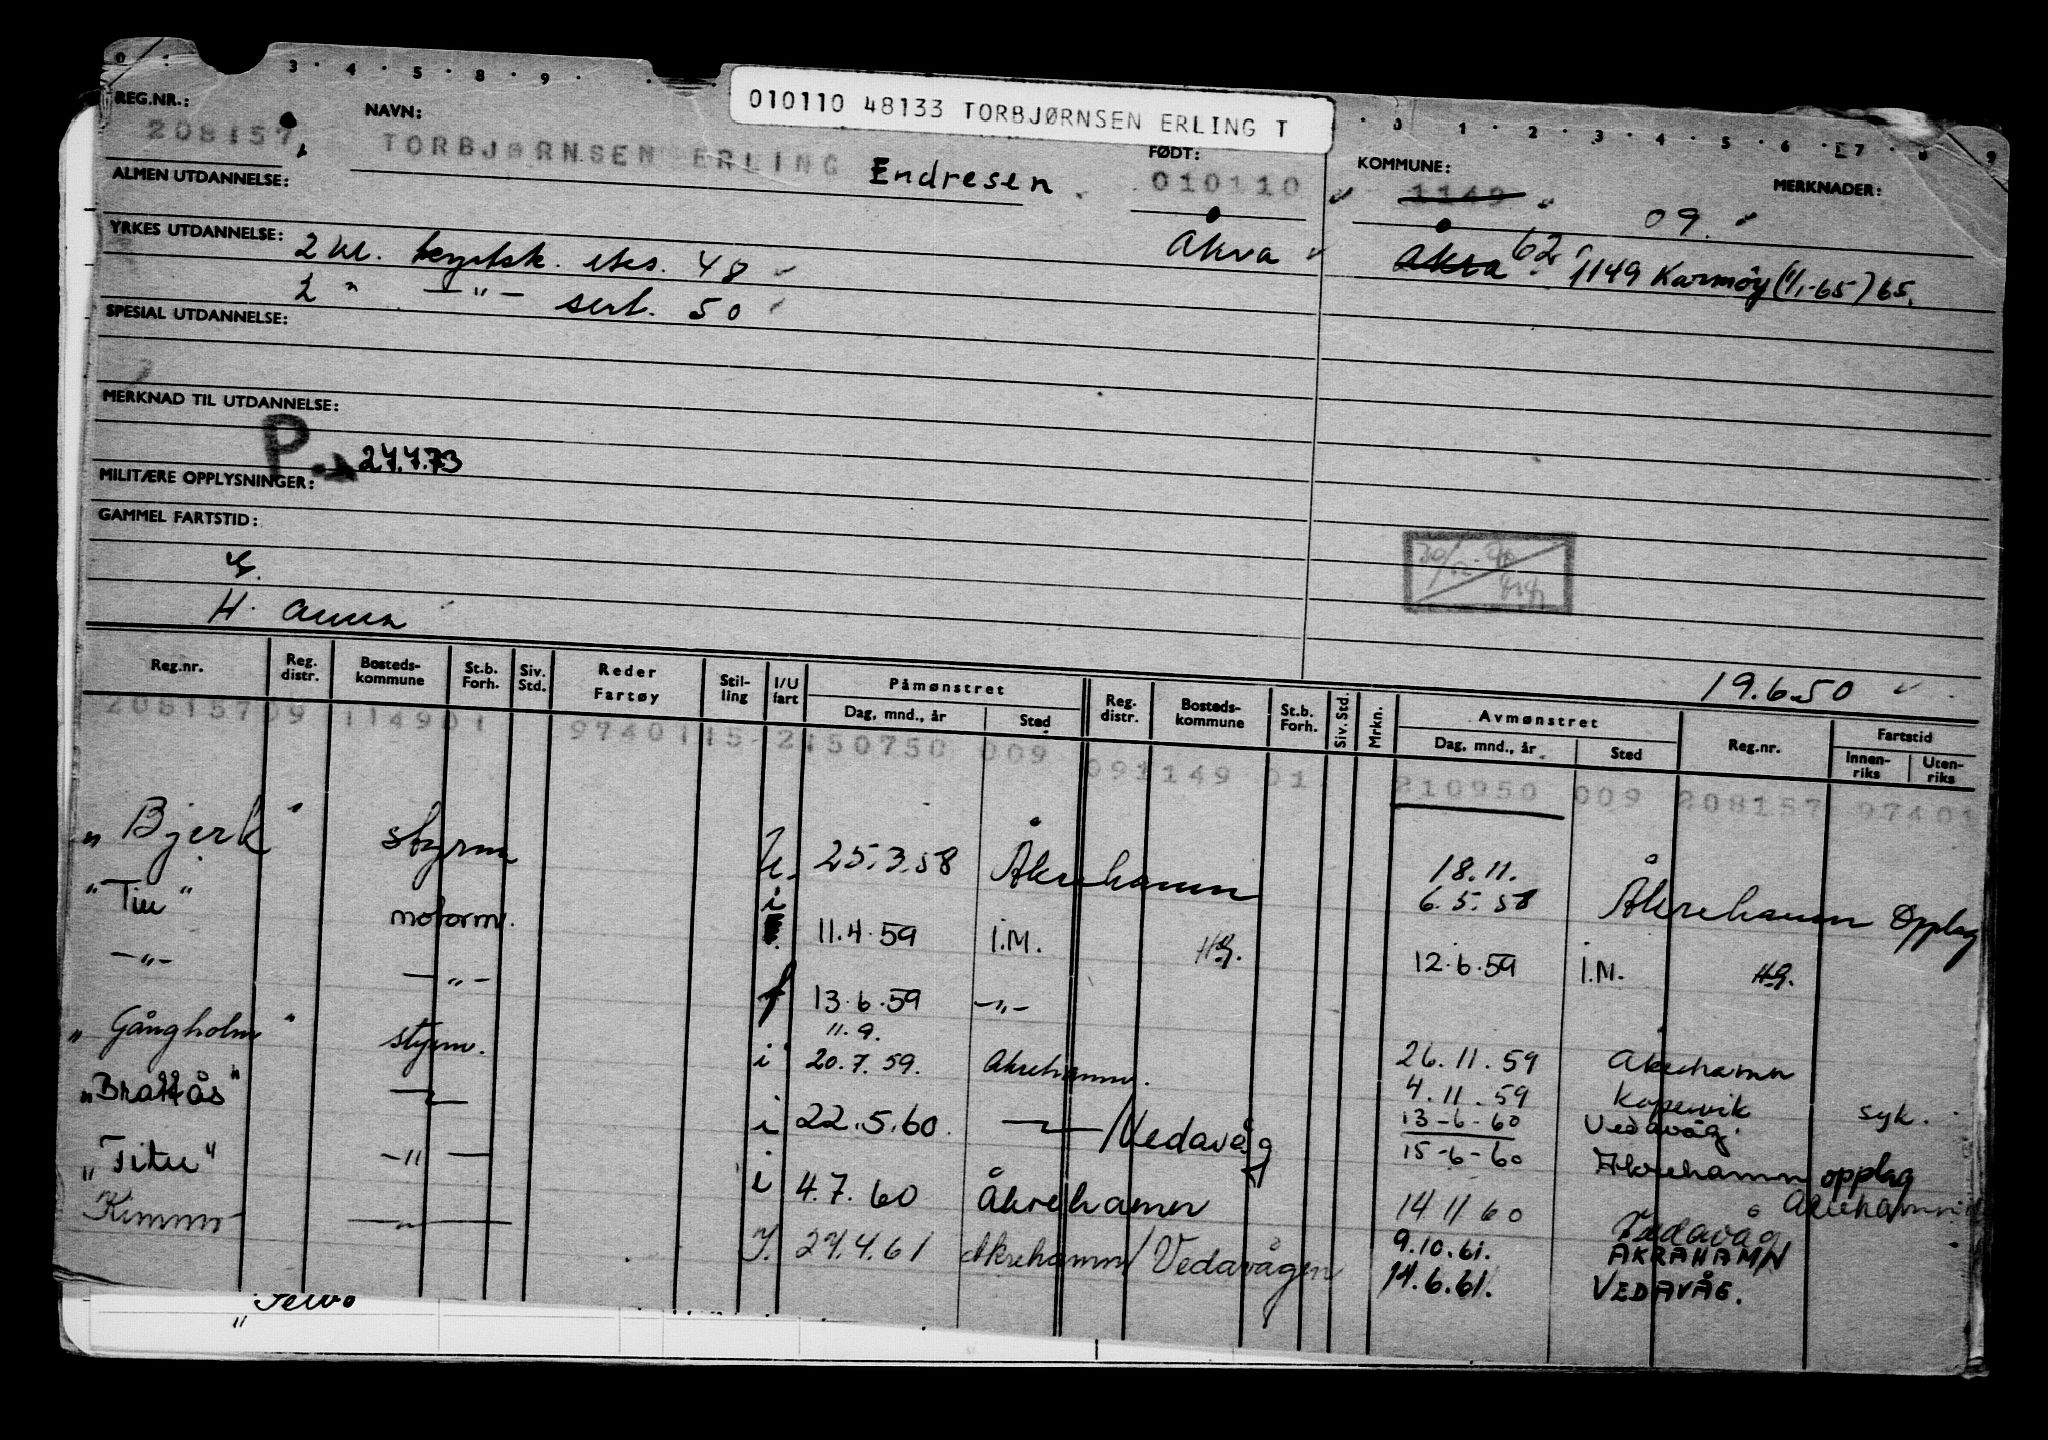 0 3 4 5 8 9 0 1 2 3 4 5 6 E7 8 9
010110 48133 TORBJØRNSEN ERLING T
REG.NR.: 208157
NAVN: TORBJØRNSEN ERLING Endresen
FØDT: 010110 Åkra
KOMMUNE: 1149
MERKNADER: 09.
Åkra 62 1149 Karmøy (1/1-65) 65.
ALMEN UTDANNELSE:
YRKES UTDANNELSE: 2 kl. kystsk. eks. 48
2 " —"— sert. 50
SPESIAL UTDANNELSE:
MERKNAD TIL UTDANNELSE:
P. 27.4.73
MILITÆRE OPPLYSNINGER:
GAMMEL FARTSTID:
G.
H. Anna
19.6.50
Reg.nr. Reg. distr. Bosteds-kommune St.b. Forh. Siv. Std. Reder Fartøy Stil-ling I/U fart Påmønstret Dag, mnd., år Sted Reg. distr. Bosteds-kommune St.b. Forh. Siv. Std. Mrkn. Avmønstret Dag, mnd., år Sted Reg.nr. Fartstid Innen-riks Uten-riks
208157 09 1149 01 9740115 2 150750 009 09 1149 01 210950 009 208157 97401
"Bjerk" styrm U. 25.3.58 Åkrehamn 18.11.
6.5.58 Åkrehamn Opplag
" motorm. i 11.4.59 I.M. HG. 12.6.59 I.M. HG.
—"— —"— f 13.6.59 —"—
11.9.
"Gångholm" styrm. i 20.7.59. Åkrehamn. 26.11.59 Åkrehamn
4.11.59 Kopervik syk.
"Brattås" i 22.5.60. /Vedavåg 13-6-60 Vedavåg.
15-6-60 Åkrehamn opplag
"Titu" —"— i 4.7.60 Åkrehamn 14 11 60 Vedavåg Åkrehamn
—"— I. 27.4.61 Åkrehamn/Vedavågen 9.10.61. AKRAHAMN
14.6.61. VEDAVÅG.
"